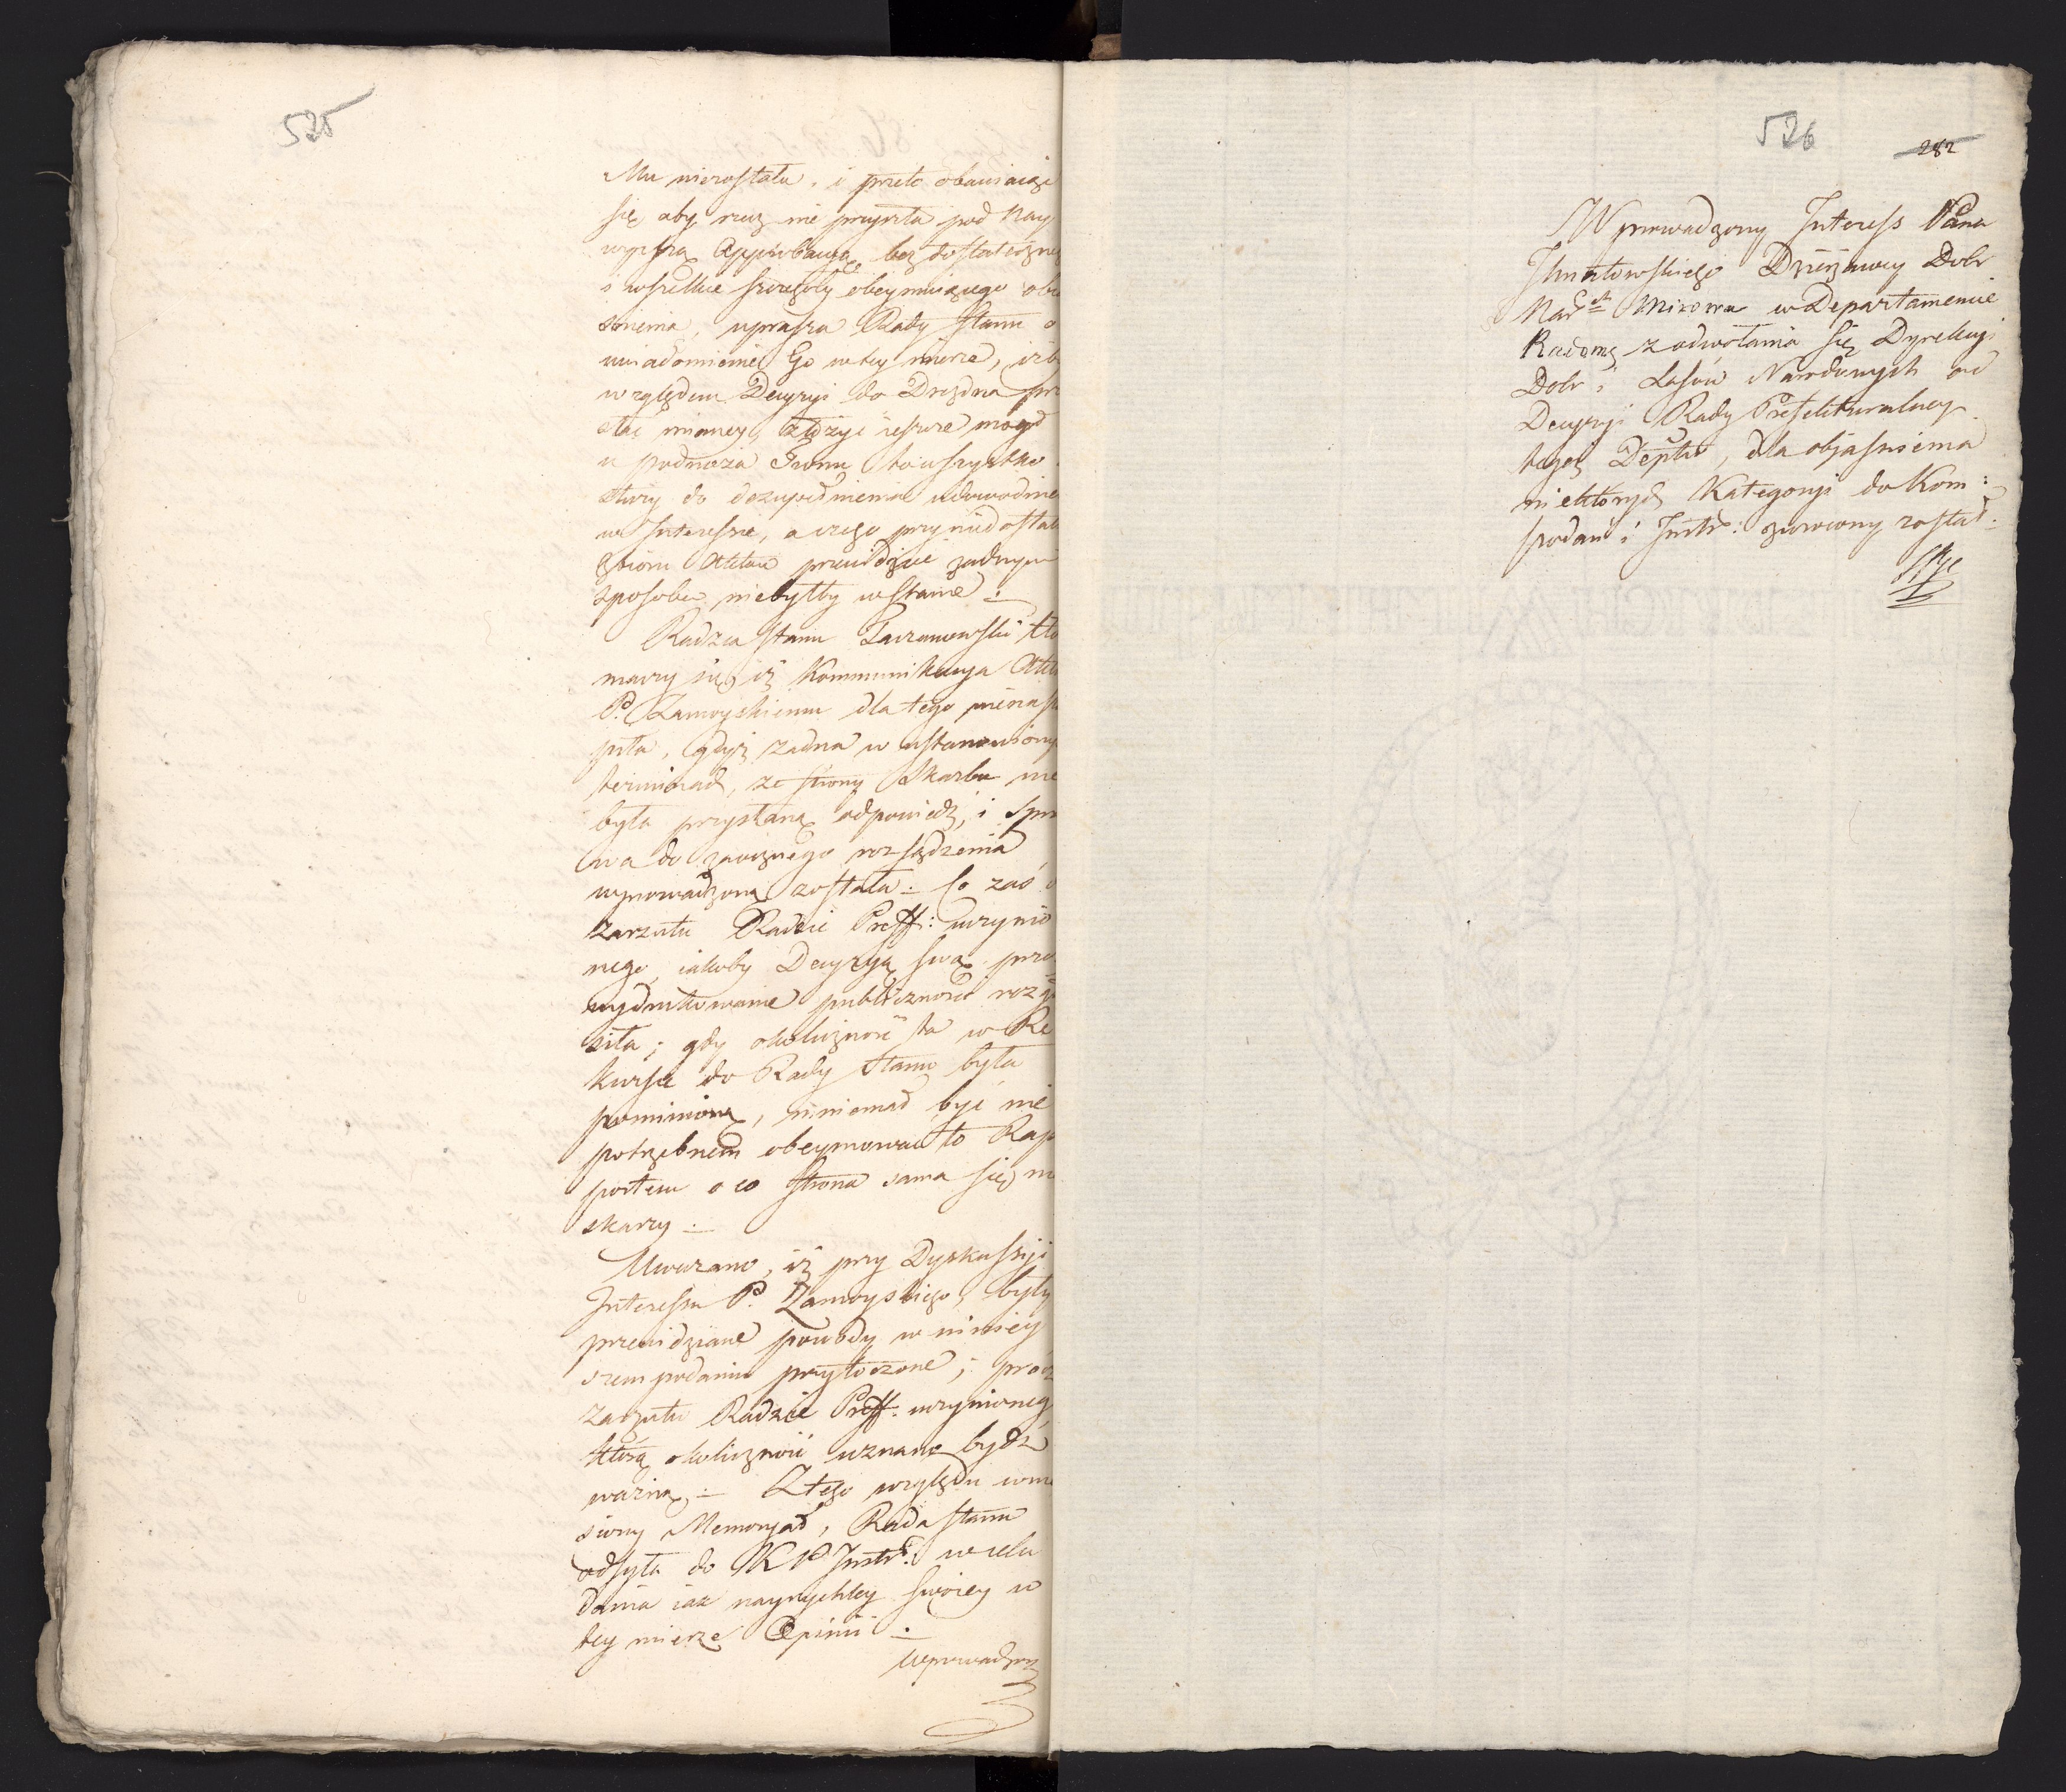 525
Mu niezostała. i przeto obawiaiąc
się aby rzecz nie przyszła pod Nay
wyższą Approbacyą bez dostateczneg
i wszelkie szczegóły obeymuiącego obia
snienia, uprasza Rady Stanu o
uwiadomienie Go w tey mierze, iżb
względem Decyzyi do Drezna prze
słać mianey, złożyć ieszcze mogł
u podnoża Tronu to wszystko
do dowodnienia
w Interessie, a czego przy niedostat
zbioru Aktów przewidzieć żadnym
sposobem niebyłby w stanie .
Radzca Stanu Tarzanowski tło
maczy się iż Kommunikacya Aktó
P. Zamoyskiemu dla tego nienastą
piła, gdyż żadna w ustanowiony
terminach, ze strony Skarbu nie
była przysłana odpowiedź, i Spra
wa do zaocznego rozsądzenia
wprowadzona została . Co zaś do
zarzutu Radzie Preff: uczynio
nego iakoby Decyzyą swą przez
wydrukowanie publiczności rozgło
siła ; gdy okoliczność ta w Re
kursie do Rady Stanu była
pominiona, mniemał być nie
potrzebnem obeymować to Rap
portem o co Strona sama się nie
skarzy .
Uważano, iż przy Dyskussyi
Interessu P. Zamoyskiego, były
przewidziane powody w niniey
szem podaniu przytoczone ; prócz
zarzutu Radzie Preff. uczynioneg
którą okoliczność uznano bydź
ważną . Z tego względu wnie
siony Memoryał, Rada Stanu
odsyła do K P Instr: w celu
dania iak nayrychley swoiey w
tey mierze Opinii .
Wprowadzon
526
282
Wprowadzony Interess Pana
Ihnatowskiego Dzierżawcy Dobr
Nar Mirowa w Departamencie
Radoms z odwołania się Dyrekcyi
Dobr i Lasów Narodowych od
Decyzyi Rady Prefekturalney
tegoż Deptu, dla obiaśnienia
niektórych Kategoryi do Kom:
podań i Instr: zwrócony został .